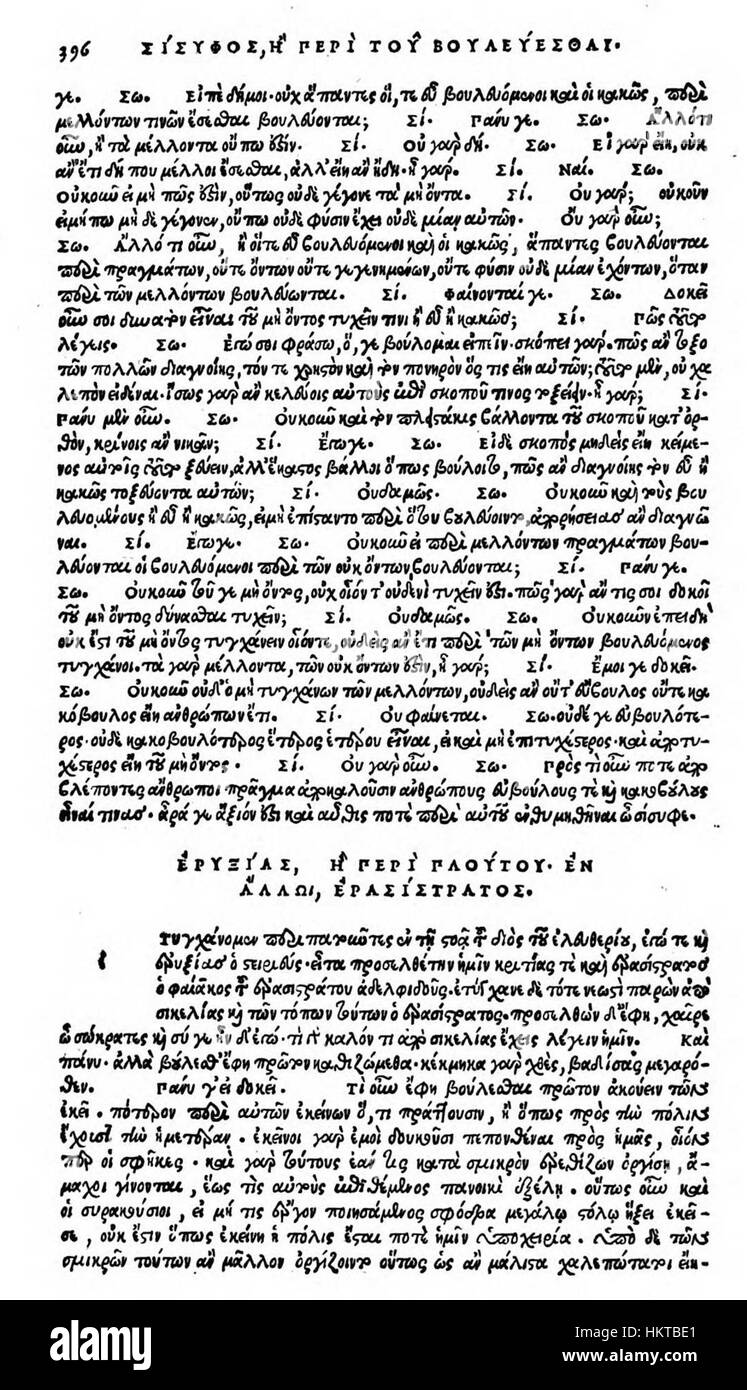 396 ΣΙΣΥΦΟΣ, Ἢ ΠΕΡΙ ΤΟΥ ΒΟΥΛΕΥΕΣΘΑΙ.
γε. Σω. Εἰπὲ δή μοι· οὐχ ἅπαντες οἵ, τε εὖ βουλευόμενοι καὶ οἱ κακῶς, περὶ
μελλόντων τινῶν ἔσεσθαι βουλεύονται; Σί. Πάνυ γε. Σω. Ἄλλό τι
οὖν, ἢ τὰ μέλλοντα οὔπω ἐστίν. Σί. Οὐ γὰρ δή. Σω. Εἰ γὰρ εἴη, οὐκ
ἂν ἔτι δή που μέλλοι ἔσεσθαι, ἀλλ' εἴη ἂν ἤδη· ἦ γάρ. Σί. Ναί. Σω.
Οὐκοῦν εἰ μή πως ἐστίν, οὕτως οὐδὲ γέγονε τὰ μὴ ὄντα. Σί. Οὐ γάρ; οὐκοῦν
εἰ μή πω μηδὲ γέγονεν, οὔπω οὐδὲ φύσιν ἔχει οὐδὲ μίαν αὐτῶν. Οὐ γὰρ οὖν;
Σω. Ἄλλό τι οὖν, ἢ οἵ τε εὖ βουλευόμενοι καὶ οἱ κακῶς, ἅπαντες βουλεύονται
περὶ πραγμάτων, οὔτε ὄντων οὔτε γεγενημένων, οὔτε φύσιν οὐδὲ μίαν ἐχόντων, ὅταν
περὶ τῶν μελλόντων βουλεύωνται. Σί. Φαίνονταί γε. Σω. Δοκεῖ
οὖν σοι δυνατὸν εἶναι τοῦ μὴ ὄντος τυχεῖν τινι ἢ εὖ ἢ κακῶς; Σί. Πῶς τοῦτο
λέγεις. Σω. Ἐγώ σοι φράσω, ὅ, γε βούλομαι εἰπεῖν· σκόπει γάρ. πῶς ἂν τοξο
τῶν πολλῶν διαγνοίης, τόν τε χρηστὸν καὶ τὸν πονηρὸν ὅς τις εἴη αὐτῶν; τοῦτο μὲν, οὐ χα
λεπὸν εἰδέναι· ἴσως γὰρ ἂν κελεύοις αὐτοὺς ἐπὶ σκοποῦ τινος τοξεύειν· ἦ γάρ; Σί.
Πάνυ μὲν οὖν. Σω. Οὐκοῦν καὶ τὸν πλειστάκις βάλλοντα τοῦ σκοποῦ κατ' ὀρ
θὸν, κρίνοις ἂν νικᾶν; Σί. Ἔγωγε. Σω. Εἰ δὲ σκοπὸς μηδεὶς εἴη κείμε-
νος αὐτοῖς τοξεύειν, ἀλλ' ἕκαστος βάλλοι ὅπως βούλοιτο, πῶς ἂν διαγνοίης τὸν εὖ ἢ
κακῶς τοξεύοντα αὐτῶν; Σί. Οὐδαμῶς. Σω. Οὐκοῦν καὶ τοὺς βου
λευομένους ἢ εὖ ἢ κακῶς, εἰ μὴ ἐπίσταντο περὶ ὅτου βουλεύοιντο, ἀχρήσειας ἂν διαγνῶ
ναι. Σί. Ἔγωγε. Σω. Οὐκοῦν εἰ περὶ μελλόντων πραγμάτων βου-
λεύονται οἱ βουλευόμενοι περὶ τῶν οὐκ ὄντων βουλεύονται; Σί. Πάνυ γε.
Σω. Οὐκοῦν τοῦ γε μὴ ὄντος, οὐκ οἷόν τ' οὐδενὶ τυχεῖν ἐστι. πῶς γὰρ ἄν τις σοι δοκοῖ
τοῦ μὴ ὄντος δύνασθαι τυχεῖν; Σί. Οὐδαμῶς. Σω. Οὐκοῦν ἐπειδὴ
οὐκ ἔστι τοῦ μὴ ὄντος τυγχάνειν οἷόν τε, οὐδεὶς ἂν ἔτι περὶ τῶν μὴ ὄντων βουλευόμενος
τυγχάνοι. τὰ γὰρ μέλλοντα, τῶν οὐκ ὄντων ἐστίν, ἦ γάρ; Σί. Ἔμοιγε δοκεῖ.
Σω. Οὐκοῦν οὐδ' ὁ μὴ τυγχάνων τῶν μελλόντων, οὐδεὶς ἂν οὔτ' εὔβουλος οὔτε κα
κόβουλος εἴη ἀνθρώπων ἔτι. Σί. Οὐ φαίνεται. Σω. οὐδέ γε εὐβουλότε-
ρος· οὐδὲ κακοβουλότερος ἕτερος ἑτέρου εἶναι, εἰ καὶ μὴ ἐπιτυχέστερος· καὶ ἀτυ-
χέστερος εἴη τοῦ μὴ ὄντος. Σί. Οὐ γὰρ οὖν. Σω. Πρὸς τί οὖν ποτε ἀπο
βλέποντες ἄνθρωποι πρᾶγμα ἀποκαλοῦσιν ἀνθρώπους εὐβούλους τε καὶ κακοβούλους
εἶναί τινας. ἆρά γε ἄξιόν ἐστι καὶ αὖθίς ποτε περὶ αὐτοῦ ἐνθυμηθῆναι ὦ σίσυφε.
ΕΡΥΞΙΑΣ, Ἢ ΠΕΡΙ ΠΛΟΥΤΟΥ. ΕΝ
ΑΛΛΩΙ, ΕΡΑΣΙΣΤΡΑΤΟΣ.
τυγχάνομεν περιπατοῦντες ἐν τῇ στοᾷ τοῦ διὸς τοῦ ἐλευθερίου, ἐγώ τε καὶ
ἐρυξίας ὁ στειριεύς. εἶτα προσελθέτην ἡμῖν κριτίας τε καὶ ἐρασίστρατος
ὁ φαίακος τοῦ ἐρασιστράτου ἀδελφιδοῦς. ἐτύγχανε δὲ τότε νεωστὶ παρὼν ἀπὸ
σικελίας καὶ τῶν τόπων τούτων ὁ ἐρασίστρατος. προσελθὼν δ' ἔφη, χαῖρε
ὦ σώκρατες καὶ σύ γε ἦν δ' ἐγώ. τί δὲ καλόν τι ἀπὸ σικελίας ἔχεις λέγειν ἡμῖν. Καὶ
πάνυ. ἀλλὰ βούλεσθ' ἔφη πρῶτον καθιζώμεθα. κέκμηκα γὰρ χθὲς, βαδίσας μεγαρό-
θεν. Πάνυ γ' εἰ δοκεῖ. Τί οὖν ἔφη βούλεσθαι πρῶτον ἀκούειν τῶν
ἐκεῖ. πότερον περὶ αὐτῶν ἐκείνων ὅ, τι πράττουσιν, ἢ ὅπως πρὸς τὴν πόλιν
ἔχουσι τὴν ἡμετέραν. ἐκεῖνοι γὰρ ἐμοὶ δοκοῦσι πεπονθέναι πρὸς ἡμᾶς, οἷόν
περ οἱ σφῆκες. καὶ γὰρ τούτους ἐάν τις κατὰ σμικρὸν ἐρεθίζων ὀργίσῃ, ἄ-
μαχοι γίνονται, ἕως τις αὐτοὺς ἐπιθέμενος πανοικὶ ἐξέλῃ. οὕτως οὖν καὶ
οἱ συρακούσιοι, εἰ μή τις ἔργον ποιησάμενος σφόδρα μεγάλῳ στόλῳ ἥξει ἐκεῖ-
σε, οὐκ ἔστιν ὅπως ἐκείνη ἡ πόλις ἔσται ποτὲ ἡμῖν ὑποχειρία. ὑπὸ δὲ τῶν
σμικρῶν τούτων ἂν μᾶλλον ὀργίζοιντο οὕτως ὡς ἂν μάλιστα χαλεπώτατοι εἴη-
alamy
Image ID: HKTBE1
www.alamy.com